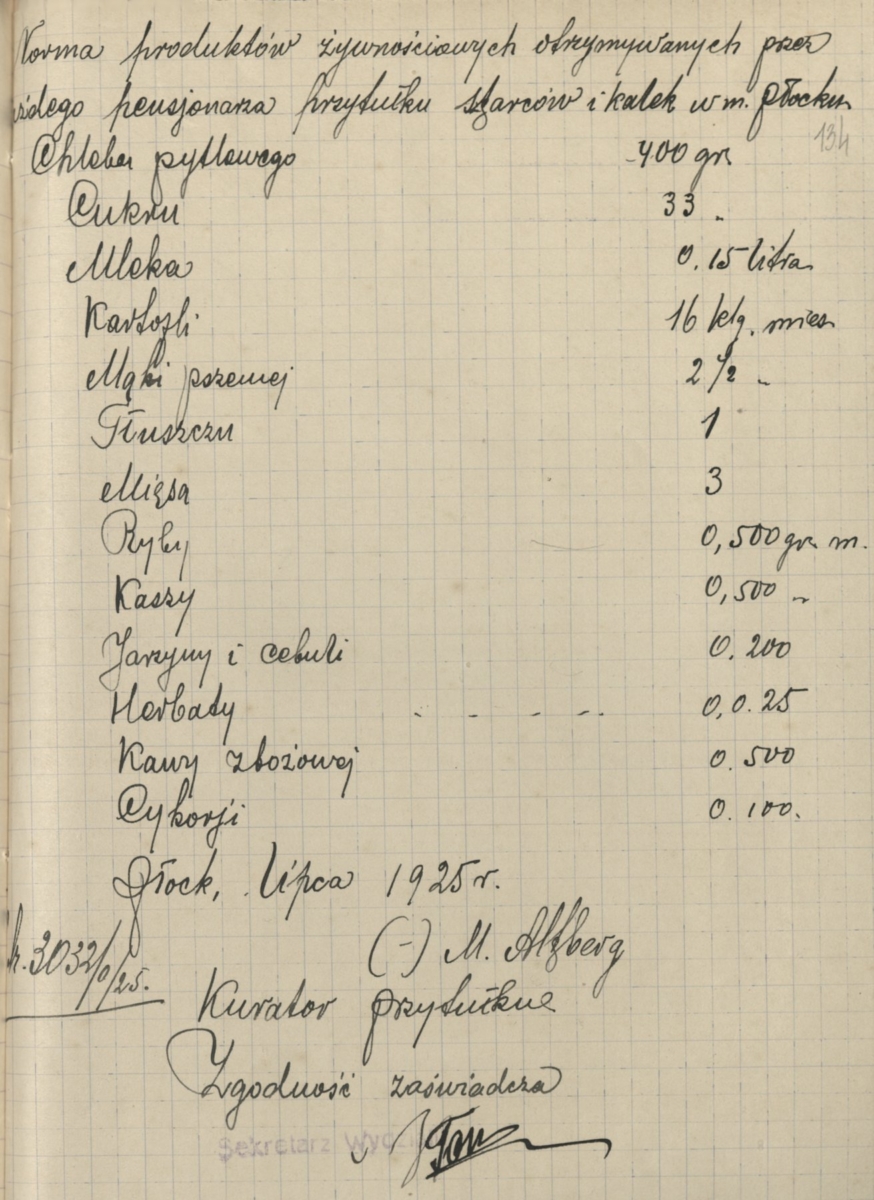 Norma produktów żywnościowych otrzymywanych przez
każdego pensjonarza przytułku starców i kalek w m. Płocku
134
Chleba pytlowego -400 gr.
Cukru 33 "
Mleka 0.15 litra
Kartofli 16 klg. mies
Mąki pszennej 2 1/2 "
Tłuszczu 1
Mięsa 3
Ryby 0,500 gr. m.
Kaszy 0,500 "
Jarzyny i cebuli 0.200
Herbaty - - - - . . 0,0.25
Kawy zbożowej 0.500
Cykorji 0.100.
Płock, lipca 1925 r.
(-) M. Altberg
3032/0/25.
Kurator przytułku
Zgodność zaświadcza
Sekretarz